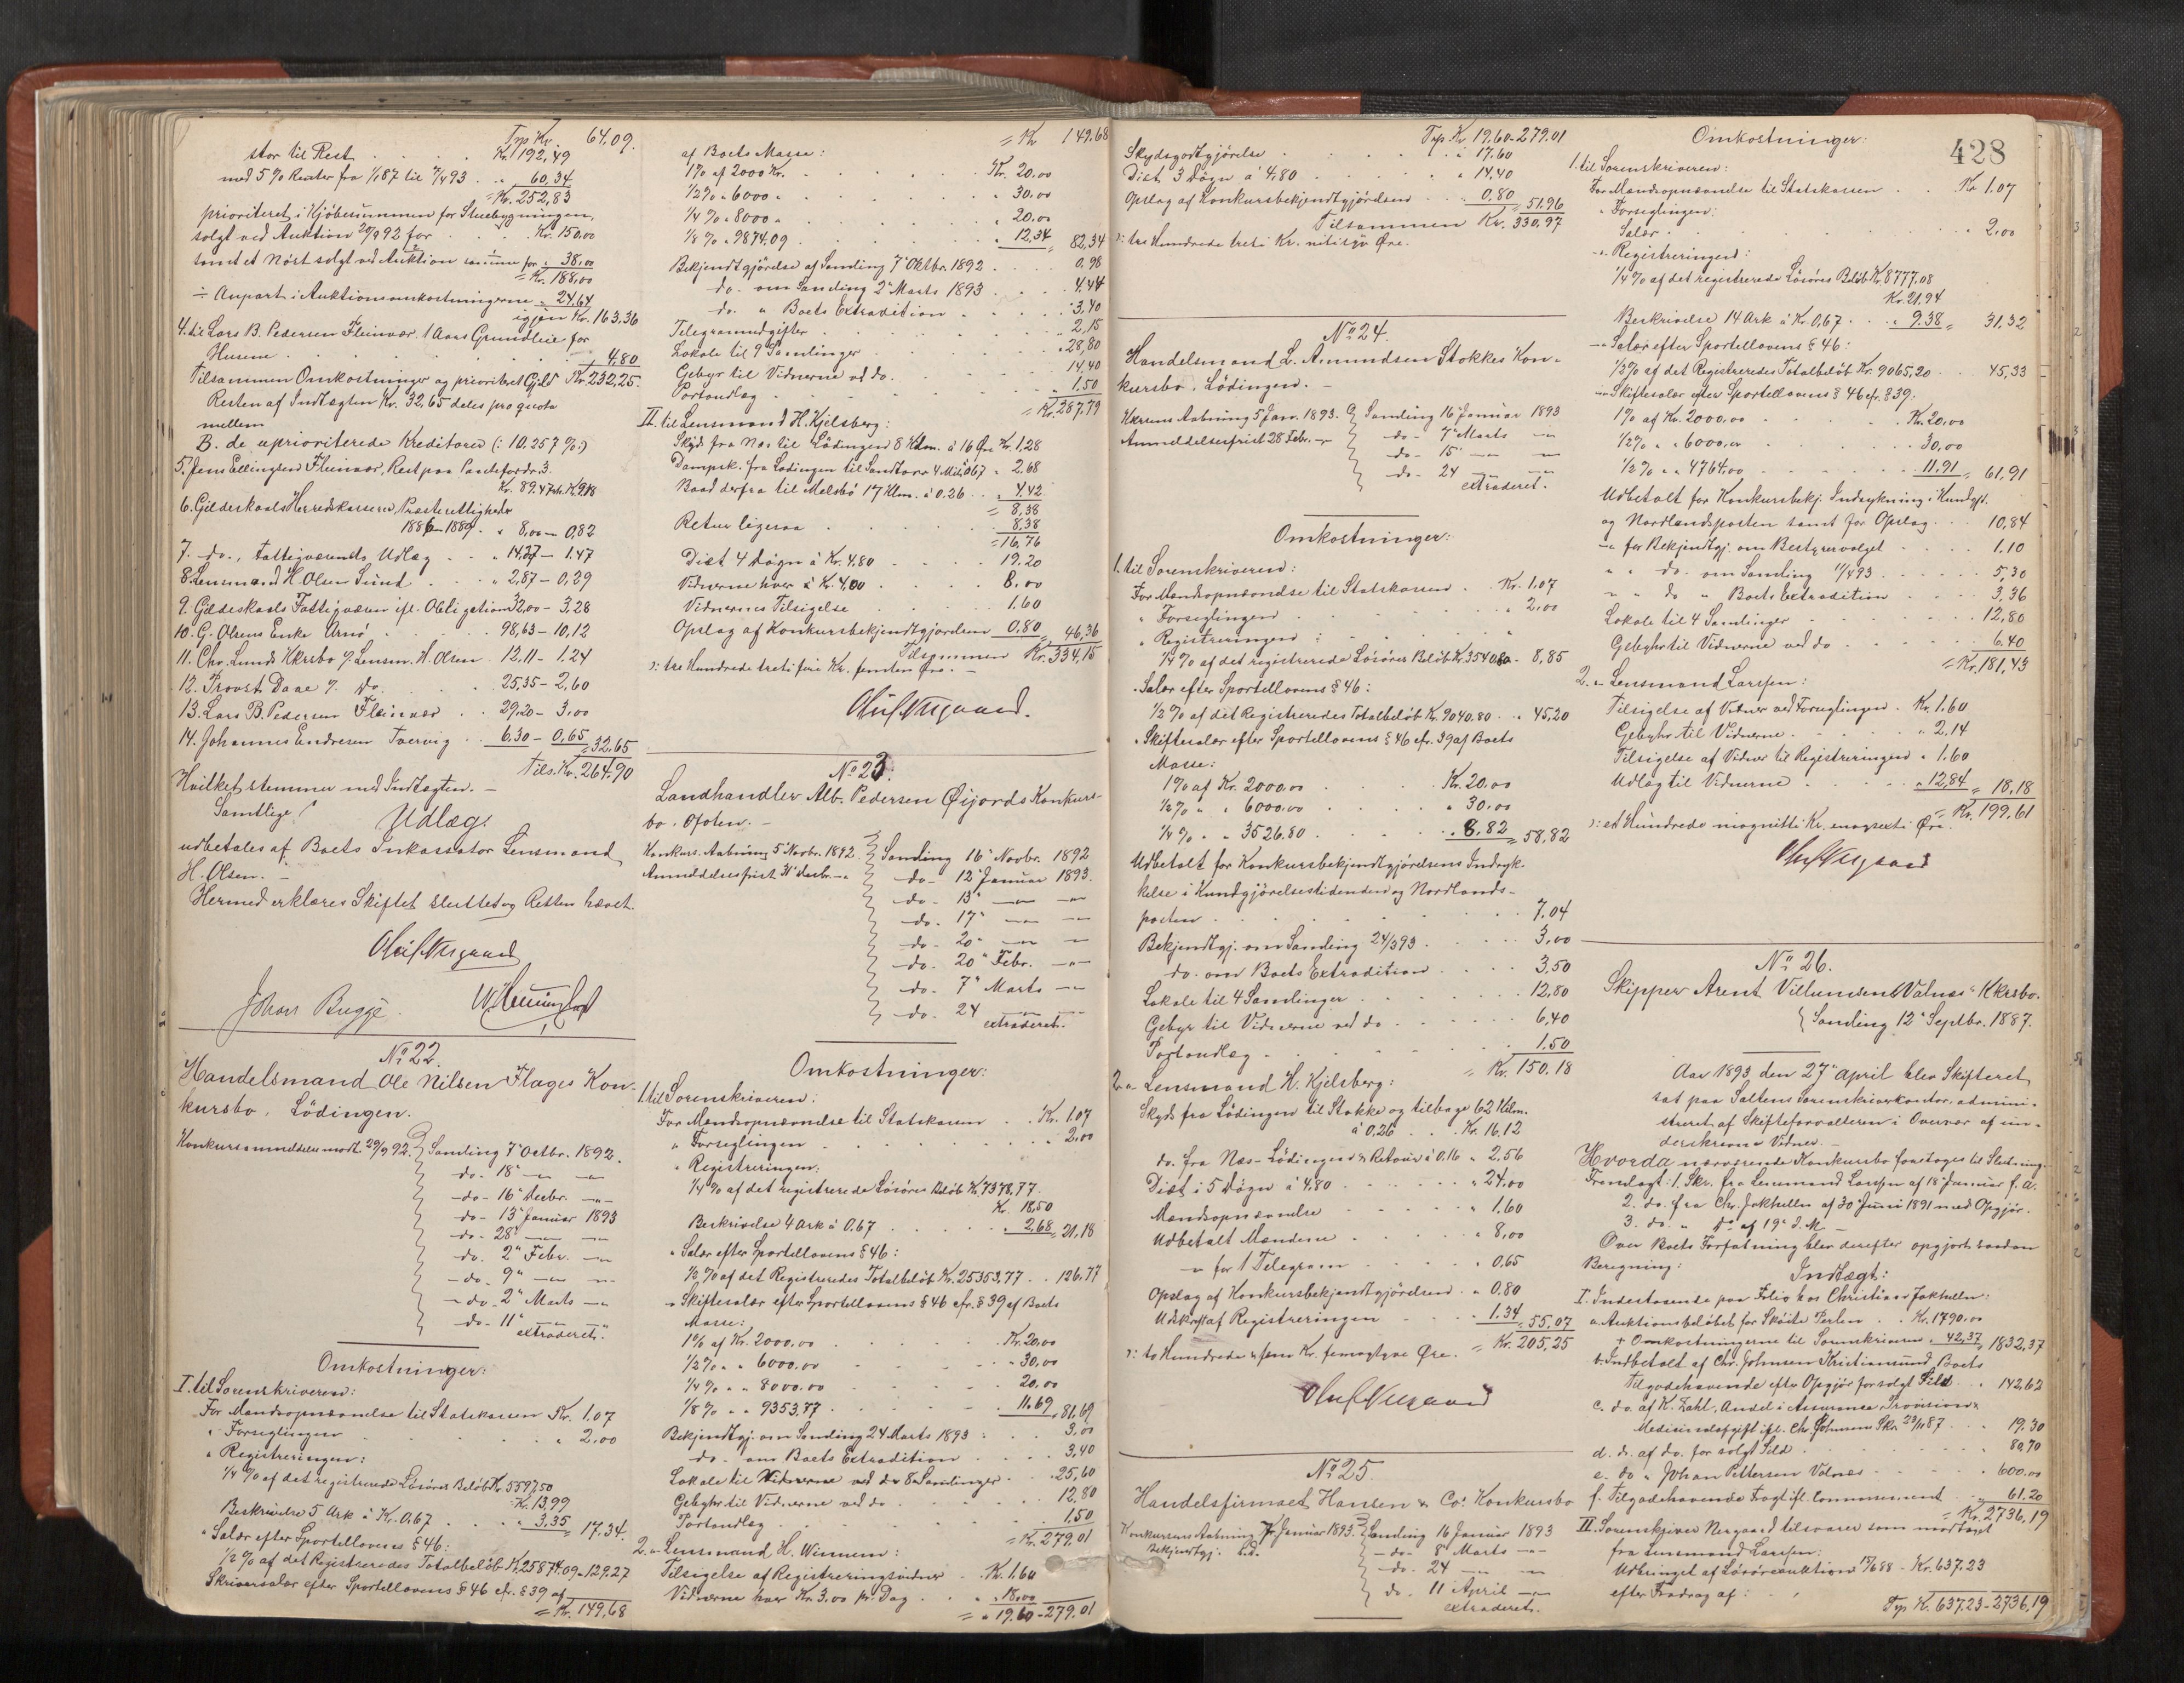 Trp Kr. 64,09.
stor til Rest . . . Kr. 192,49
med 5% Renter fra 1/187 til 7/493 . . " 60,34
= Kr. 252,83
prioriteret i Kjøbesummen for Stuebygningen,
solgt ved Auktion 20/992 for . . . Kr. 150,00
samt et Nöst solgt ved Auktion samme for " 38,00
= Kr. 188,00
÷ Anpart i Auktionsomkostningerne " 24,64
igjen Kr. 163,36
4. til Lars B. Pedersen Fleinvær 1 Aars Grundleie for
Husene . . . 4,80
Tilsammen Omkostninger og prioritet Gjeld Kr. 232,25.
Resten af Indtægten Kr. 32,65 deles pro quota
mellem
B. de uprioriterede Kreditorer (: 10.257 %:)
5. Jens Ellingsen Fleinvær, Rest paa Pantefordr. 3.
Kr. 89.47 Kr. 9,18
6. Gildeskaals Herredskasserer, Præsterettigheder
1886-1889 . " 8,00 - 0,82
7. do., Fattigvæsenets Udlæg . . " 14,37 - 1.47
8. Lensmand H. Olsen Sund . . " 2,87 - 0,29
9. Gildeskaals Fattigvæsen ifl. Obligation 32,00 - 3,28
10. G. Olsens Enke Arnö . . 98,63 - 10,12
11. Chr. Lunds Kkrsbo v. Lensm. H. Olsen . 12.11 - 1.24
12. Provst Daae v. do. . . 25,35 - 2,60
13. Lars B. Pedersen Fleinvær . . 29,20 - 3,00
14. Johannes Endresen Tvervig . . 6.30 - 0,65 = 32,65
Tils. Kr. 264,90
Hvilket stemmer med Indtægten. -
Samtlige
Udlæg
udbetales af Boets Inkassator Lensmand
H. Olsen. -
Hermed erklæres Skiftet sluttet og Retten hævet.
Johan Bugge.
No 22.
Handelsmand Ole Nilsen Flages Kon-
kursbo, Lödingen.
Konkursanmeldelse modt. 29/9 92. Samling 7' Octbr. 1892.
do. 18' — —
- do - 16' Decbr. - " -
do - 13' Januar 1893
do - 28' — —
do. 2' Febr. —
- do. 9' — —
- do. 2' Marts —
do - 11' — —
extraderet.
Omkostninger:
I. til Sorenskriveren:
For Mændsopnævnelse til Statskassen Kr. 1.07
" Forseglingen . . . " 2.00
" Registreringen:
1/4 % af det registrerede Lösöres Belöb Kr. 5597,50
Kr. 13,99
Beskrivelse 5 Ark à Kr. 0,67 . . " 3,35 = 17.34.
" Salær efter Sportellovens § 46:
1/2 % af det Registreredes Totalbelöb Kr. 25874.09 = 129.27
Skiftesalær efter Sportellovens § 46 cfr. § 39 af
= Kr. 149,68
= Kr 149,68
af Boets Masse:
1% af 2000 Kr. . . . Kr. 20,00
1/2 % " 6000 " . . . " 30,00
1/4 % " 8000 " . . . " 20,00
1/8 % " 9874.09 . . . " 12,34 = 82,34
Bekjendtgjörelse af Samling 7' Oktbr. 1892 . . 0,98
do. om Samling 2' Marts 1893 . . 4,44
do. " Boets Extradition . . . 3,40
Telegramudgifter . . . " 2,15
Lokale til 9 Samlinger . . . " 28,80
Gebyr til Vidnerne ved do. . . 14,40
Portoudlæg . . . " 1,50
= Kr. 287,79
II. til Lensmand H. Kjelsberg:
Skyds fra Næs til Lödingen 8 Kilm. à 16 Öre Kr. 1,28
Dampsk. fra Lödingen til Sandtorv 4 Mil à 0,67 " 2.68
Baad derfra til Melsbö 17 Klm. à 0.26 . . " 4.42
= 8,38
Retur ligesaa . . . 8.38
= 16,76
Diæt 4 Dögn à Kr. 4,80 . . . 19.20
Vidnerne hver à Kr. 4,00 . . . 8.00
Vidnernes Tilsigelse . . . 1.60
Opslag af Konkursbekjendtgjørelsen 0,80 = 46,36
Tilsammen Kr. 334,15
ɔ: tre Hundrede treti fire Kr. femten Øre. -
No 23.
Landhandler Alb. Pedersen Øijords Konkurs-
bo. Ofoten. -
Konkurs. Aabning 5' Novbr. 1892. Samling 16' Novbr. 1892
Anmeldelsesfrist 31' Decbr. - " do - 12' Januar 1893.
do - 13' — —
do. - 17' — —
do - 20' — —
do. 20' Febr. — —
do. 7' Marts — —
do. 24 — —
extraderet.
Omkostninger:
1. til Sorenskriveren:
For Mændsopnævnelse til Statskassen . . Kr. 1.07
" Forseglingen . . . " 2.00
" Registreringen:
1/4 % af det registrerede Lösöres Belöb Kr. 7378,77.
Kr. 18,50
Beskrivelse 4 Ark à 0.67 . . " 2,68 = 21,18
" Salær efter Sportellovens § 46:
1/2 % af det Registreredes Totalbelöb Kr. 25353,77 . . 126,77
" Skiftesalær efter Sportellovens § 46 cfr. § 39 af Boets
Masse:
1% af Kr. 2000,00 . . . Kr. 20,00
1/2 % " " 6000.00 . . . " 30,00
1/4 % " " 8000.00 . . . 20,00
1/8 % " " 9353,77 . . . 11.69 = 81,69
Bekjendtgj. om Samling 24 Marts 1893 : . . 3,00
do. om Boets Extradition . . . 3,40
Lokale til Vidnerne ved do 8 Samlinger . . 25,60
Gebyhr til Vidnerne ved do . . . 12.80
Portoudlæg . . . 1,50
= Kr. 279,01
2. " Lensmand H. Winnem:
Tilsigelse af Registreringsvidner . . Kr. 1.60
Vidnerne hver Kr. 3,00 pr. Dag . . " 18,00
= " 19,60 - 279,01
428
Trp. Kr. 19,60 - 279.01
Skydsgodtgjörelse . . . " 17,60
Diæt 3 Dögn à 4,80 . . . " 14,40
Opslag af Konkursbekjendtgjörelsen . . 0,80 = 51,96
Tilsammen Kr. 330,97
ɔ: tre Hundrede treti Kr. nitisyv Øre.
No 24.
Handelsmand L. Amundsen Stokkes Kon-
kursbo. Lödingen. -
Kkrens Aabning 5 Jan. 1893. Samling 16' Januar 1893
Anmeldelsesfrist 28 Febr. - " - do - 7' Marts —
- do - 15' — —
- do - 24 — —
extraderet.
Omkostninger:
1. til Sorenskriveren:
For Mændsopnævnelse til Statskassen . Kr. 1.07
" Forseglingen . . . " 2.00
" Registreringen :
1/4 % af det registrerede Lösöres Belöb Kr. 3540,80 - 8,85
" Salær efter Sportellovens § 46:
1/2 % af det Registreredes Totalbelöb Kr. 9040.80 . . 45,20
" Skiftesalær efter Sportellovens § 46 cfr. 39 af Boets
Masse:
1% af Kr. 2000.00 . . . Kr. 20,00
1/2 % " " 6000,00 . . . " 30,00
1/4 % " " 3526.80 . . . " 8,82 = 58,82
Udbetalt for Konkursbekjendtgjörelsens Indryk-
kelse i Kundgjörelsestidenden og Nordlands-
posten . . . 7.04
Bekjendtgj. om Samling 24/393 . . . 3,00
do. om Boets Extradition . . . 3,50
Lokale til 4 Samlinger . . . 12,80
Gebyr til Vidnerne ved do . . . 6,40
Portoudlæg . . . 1.50
= Kr. 150.18
2. " Lensmand H. Kjelsberg:
Skyds fra Lödingen til Stokke og tilbage 62 Kilm.
à 0,26 . . Kr. 16,12
do. fra Næs - Lödingen & Retour à 0.16 " 2,56
Diæt i 5 Dögn à 4,80 . . . " 24.00
Mændsopnævnelse . . . " 1.60
Udbetalt Mændene . . . " 8,00
— for 1 Telegram . . . " 0.65
Opslag af Konkursbekjendtgjörelsen . " 0.80
Udskrift af Registreringen . . . 1.34 = 55,07
= Kr. 205,25
ɔ: to Hundrede & fem Kr. femogtyve Øre.
No 25.
Handelsfirmaet Hansen & Co's Konkursbo
Konkursens Aabning 7' Januar 1893. Samling 16 Januar 1893
Bekjendtgj. s.d. - do - 8' Marts — —
- do - 24 — —
do - 11 April — —
extraderet.
Omkostninger:
1. til Sorenskriveren:
For Mændsopnævnelse til Statskassen . . Kr. 1.07
" Forseglingen:
Salær . . . " 2,00
" Registreringen:
1/4 % af det registrerede Lösöres Belöb Kr. 8777,08
Kr. 21.94
Beskrivelse 14 Ark à Kr. 0,67 . . " 9.38 = 31.32
— Salær efter Sportellovens § 46:
1/2 % af det Registreredes Totalbelöb Kr. 9065,20 . . 45,33
— Skiftesalær efter Sportellovens § 46 cfr. § 39.
1% af Kr. 2000.00 . . . Kr. 20,00
1/2 % " " 6000,00 . . . 30,00
1/4 % " " 4764,00 . . . 11,91 = 61,91
Udbetalt for Konkursbekj. Indrykning i Kundgjt.
og Nordlandsposten samt for Opslag . . . 10,84
— for Bekjendtgj. om Bestyrervalget . . . 1.10
" " do. om Samling 11/493 . . . 5,30
" " do " Boets Extradition . . . 3,36
Lokale til 4 Samlinger . . . 12,80
Gebyhr til Vidnerne ved do . . . 6.40
= Kr. 181,43
2. " Lensmand Larssen:
Tilsigelse af Vidner ved Forseglingen . Kr. 1.60
Gebyhr til Vidnerne . . . " 2,14
Tilsigelse af Vidner til Registreringen " 1.60
Udlæg til Vidnerne . . . " 12,84 = 18,18
= Kr. 199,61
ɔ: et Hundrede niognitti Kr. enogsexti Øre.
No 26.
Skipper Arent Villumsen Valnæs' Kkrsbo.
Samling 12' Septbr. 1887.
Aar 1893 den 27' April blev Skifteret
sat paa Saltens Sorenskriverkontor, admini-
streret af Skifteforvalteren i Overvær af un-
derskrevne Vidner. -
Hvorda nærværende Konkursbo foretoges til Slutning.
Fremlagt: 1. Skr. fra Lensmand Larssen af 18' Januar f. A.
2. do. fra Chr. Jakhelln af 30' Juni 1891 med Opgjör.
3. do. " do af 19' d. M. -
Over Boets Forfatning blev derefter opgjort saadan
Beregning:
Indtægt:
I. Indestaaende paa Folio hos Christian Jakhelln:
a. Auktionsbelöbet for Sköite Perlen . . Kr. 1790.00
+ Omkostningerne til Sorenskriveren . 42,37 = 1832,37
b. Indbetalt af Chr. Johnsen Kristiansund Boets
Tilgodehavende efter Opgjör for solgt Sild . . 142,62
c. do. af K. Zahl, Andel i Assurance, Provision &
Medicinalafgift ifl. Chr. Johnsens Skr. 23/1187 . . 19,30
d. do. af do. for solgt Sild . . . 80,70
e. do " Johan Pettersen Valnæs . . . " 600.00
f. Tilgodehavende Fragt ifl. Connossement . . " 61.20
= Kr. 2736,19
II. Sorenskriver Nergaard tilsvarer som modtaget
fra Lensmand Larssen:
Udbringet af Lösöreauktion 15/688 - Kr. 637.23
efter Fradrag af :
Trp Kr. 637.23 - 2736,19